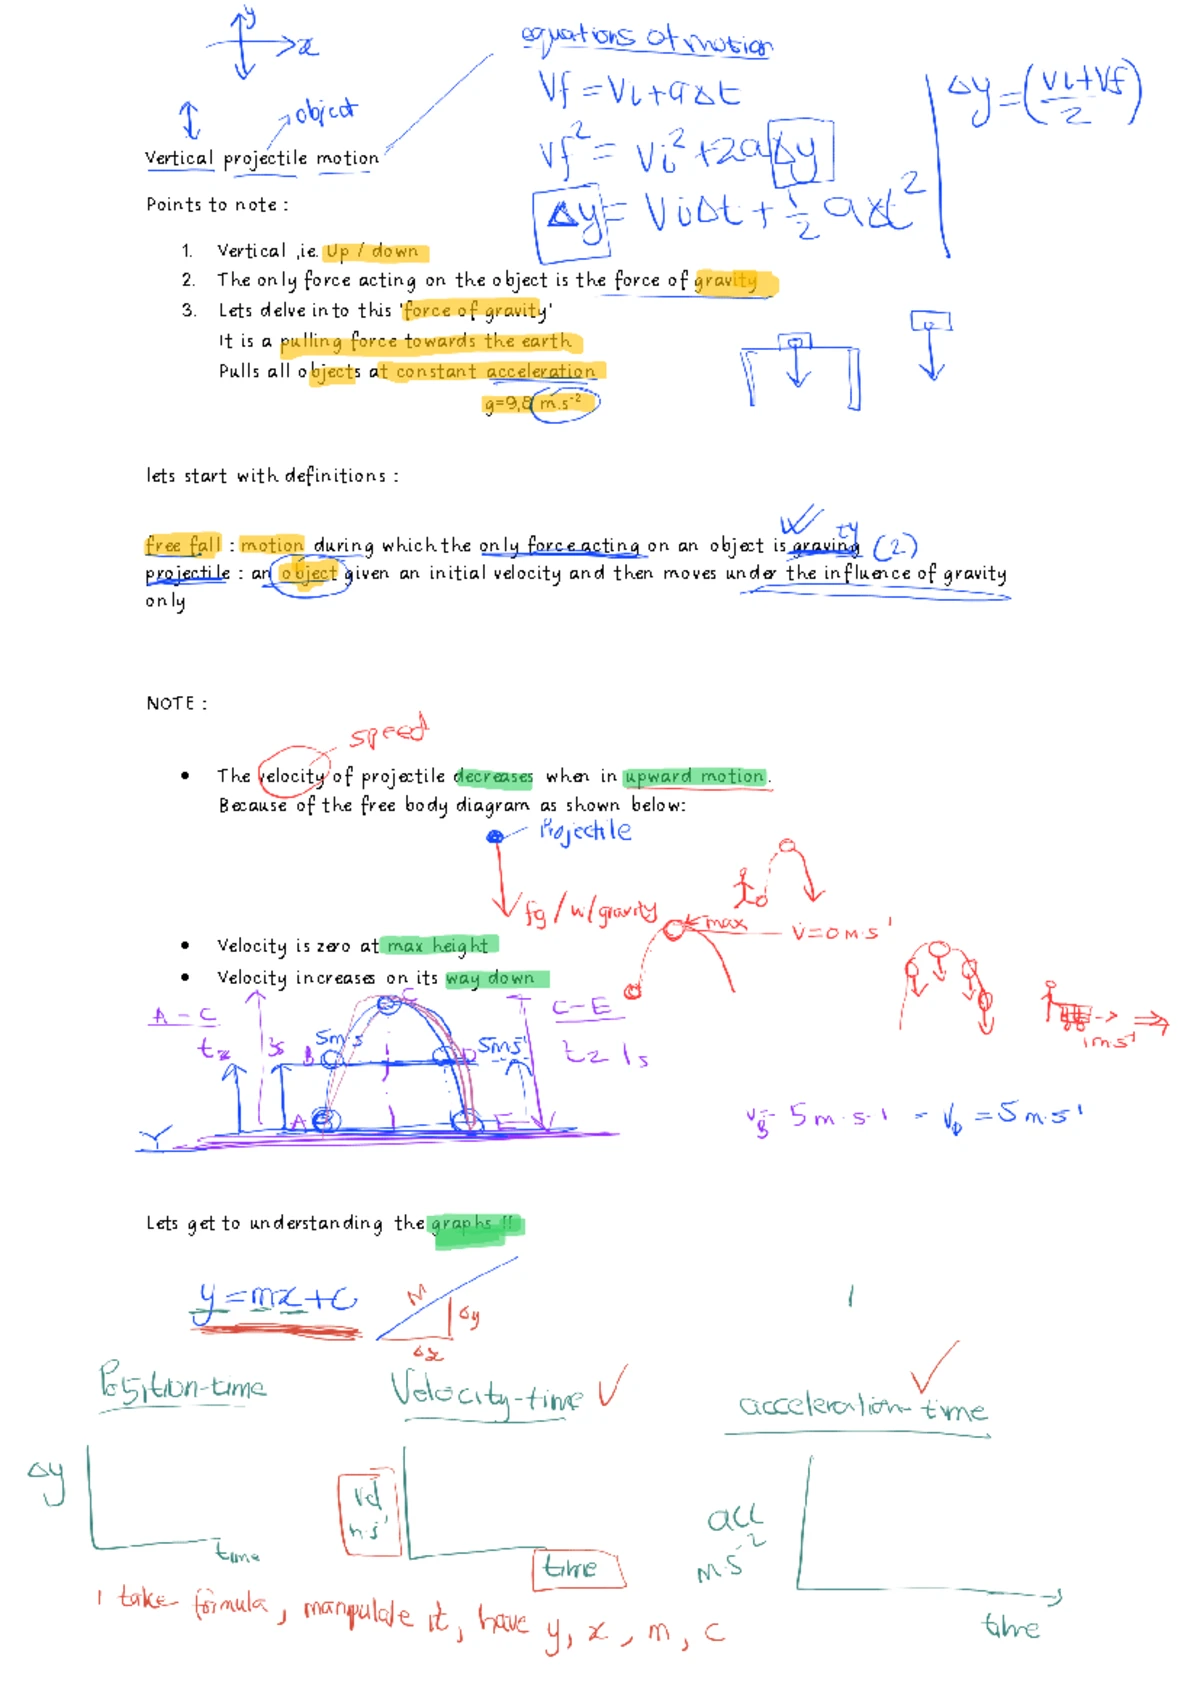 y
x
equations of motion
Vf = Vi + aΔt
Δy = (Vi+Vf/2)
object
Vf² = Vi² + 2aΔy
Vertical projectile motion
Δy = ViΔt + 1/2 aΔt²
Points to note :
1. Vertical ,ie. Up / down
2. The only force acting on the object is the force of gravity
3. Lets delve into this 'force of gravity'
It is a pulling force towards the earth
Pulls all objects at constant acceleration
g=9,8 m.s⁻²
lets start with definitions :
ty
free fall : motion during which the only force acting on an object is graving (2)
projectile : an object given an initial velocity and then moves under the influence of gravity
only
NOTE :
speed
• The velocity of projectile decreases when in upward motion.
Because of the free body diagram as shown below:
Projectile
fg / w/gravity
max
V=0m.s⁻¹
• Velocity is zero at max height
• Velocity increases on its way down
A - C
C
C - E
t2
3s
5m.s
B
D
5ms⁻¹
t2 1s
1ms⁻¹
A
E
VB = 5m.s-1 - VD = 5m.s⁻¹
Lets get to understanding the graphs !!
y = mx + c
M
Δy
Δx
Position-time
Velocity-time
acceleration-time
Δy
time
vel
m.s⁻¹
time
acc
m.s⁻²
time
1 take formula, manpulate it, have y, x, m, c